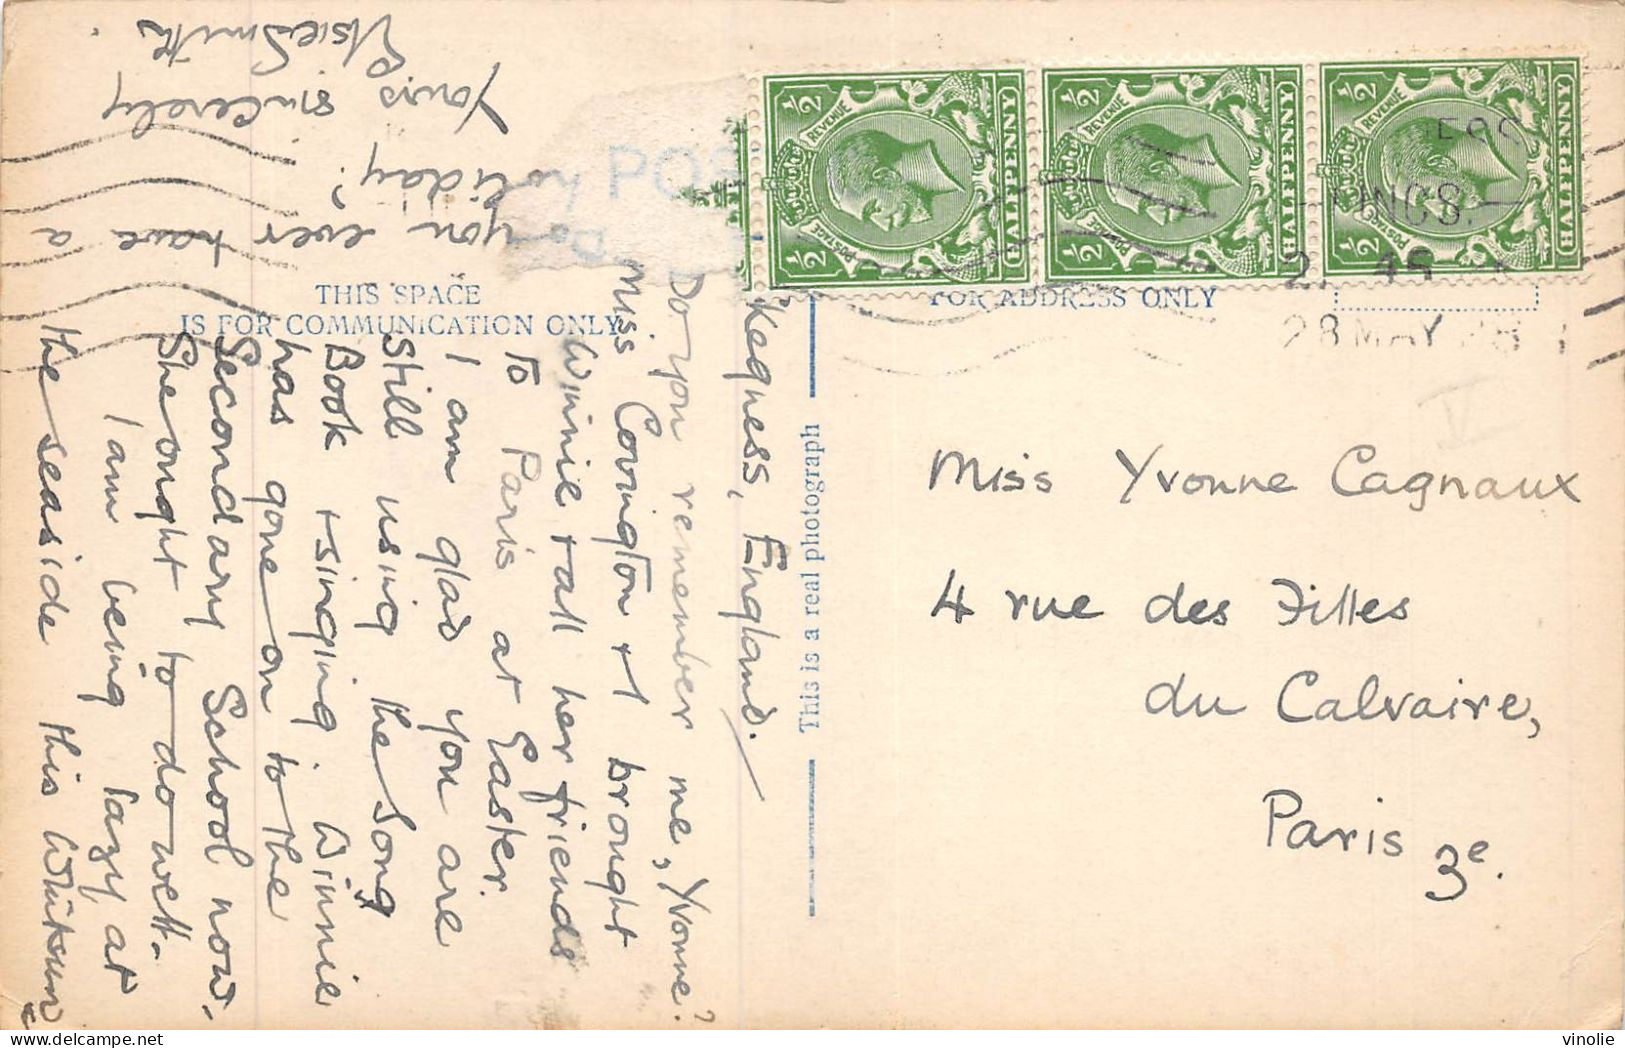 Skegness, England.
Do you remember me, Yvonne?
Miss Covington & I brought
Winnie & all her friends
to Paris at Easter.
I am glad you are
Still using the Song
Book & singing. Winnie
has gone on to the
Secondary School now.
She ought to do well.
I am being lazy at
the seaside this Whitsun
you ever have a
holiday?
Yours sincerely
Elsie Smith.
THIS SPACE
IS FOR COMMUNICATION ONLY
This is a real photograph
FOR ADDRESS ONLY
POSTAGE REVENUE
½ ½
HALFPENNY
POSTAGE REVENUE
½ ½
HALFPENNY
POSTAGE REVENUE
½ ½
HALFPENNY
LINCS.
28 MAY
Miss Yvonne Cagnaux
4 rue des Filles
du Calvaire,
Paris 3e.
vinolie